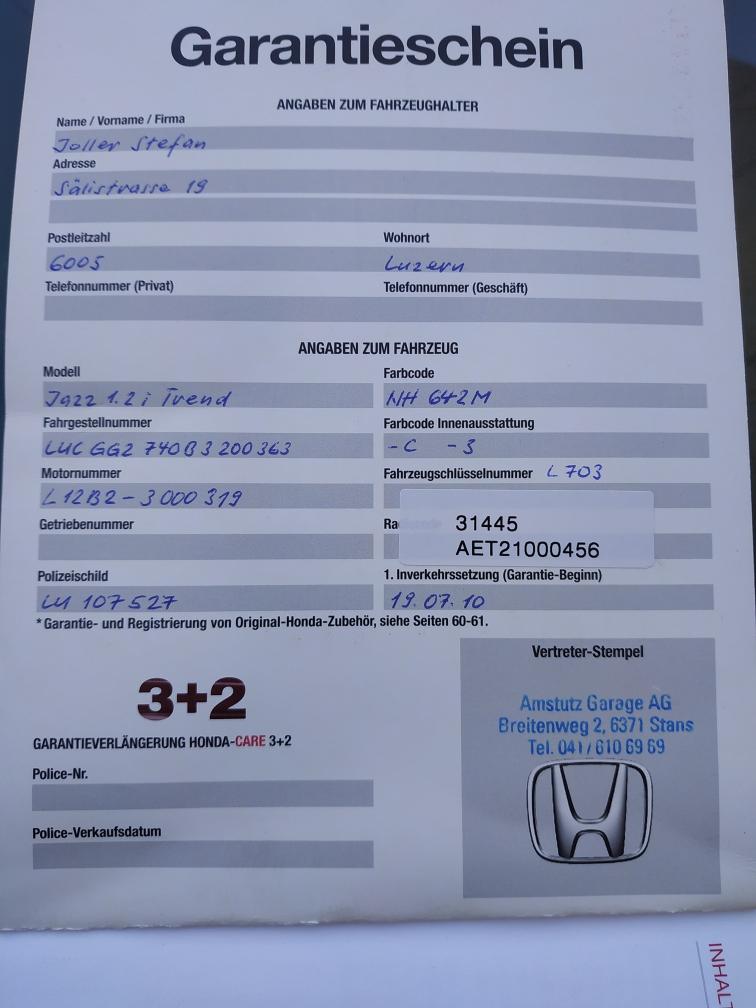 Garantieschein
ANGABEN ZUM FAHRZEUGHALTER
Name / Vorname / Firma
Joller Stefan
Adresse
Sälistrasse 19
Postleitzahl Wohnort
6005 Luzern
Telefonnummer (Privat) Telefonnummer (Geschäft)
ANGABEN ZUM FAHRZEUG
Modell Farbcode
Jazz 1.2i Trend NH 642M
Fahrgestellnummer Farbcode Innenausstattung
LUC GG2 740B3 200363 -C -3
Motornummer Fahrzeugschlüsselnummer L703
L12B2-3000319
31445
Getriebenummer
AET21000456
Polizeischild 1. Inverkehrssetzung (Garantie-Beginn)
LU 107527 19.07.10
*Garantie- und Registrierung von Original-Honda-Zubehör, siehe Seiten 60-61.
Vertreter-Stempel
3+2
Amstutz Garage AG
Breitenweg 2, 6371 Stans
Tel. 041/610 69 69
GARANTIEVERLÄNGERUNG HONDA-CARE 3+2
Police-Nr.
Police-Verkaufsdatum